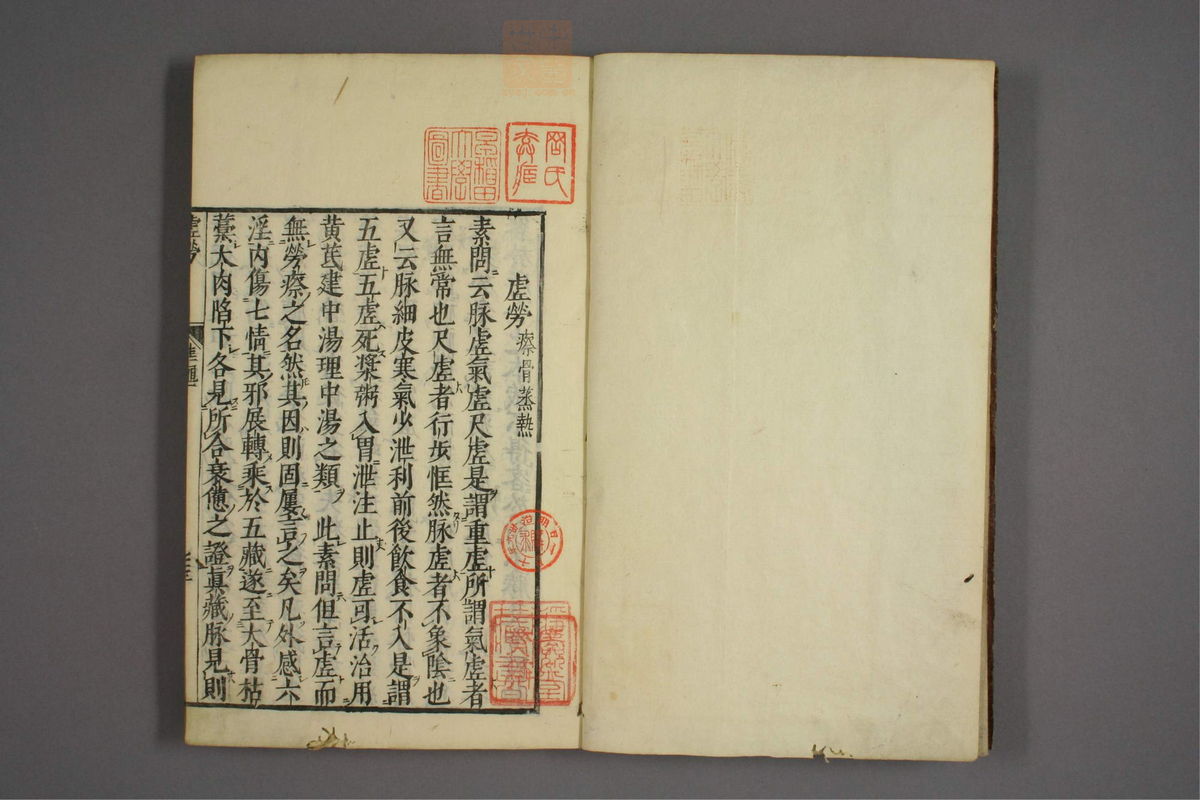 虛勞 瘵骨蒸熱
素問云脉虛氣虛尺虛是謂重虛所謂氣虛者
言無常也尺虛者行步恇然脉虛者不象陰也
又云脉細皮寒氣少泄利前後飲食不入是謂
五虛五虛死漿粥入胃泄注止則虛可活治用
黃芪建中湯理中湯之類 此素問但言虛而
無勞瘵之名然其因則固屢言之矣凡外感六
淫内傷七情其邪展轉乘於五藏遂至大骨枯
藁大肉陷下各見所合衰憊之證真藏脉見則
虛勞
早稻田大學圖書